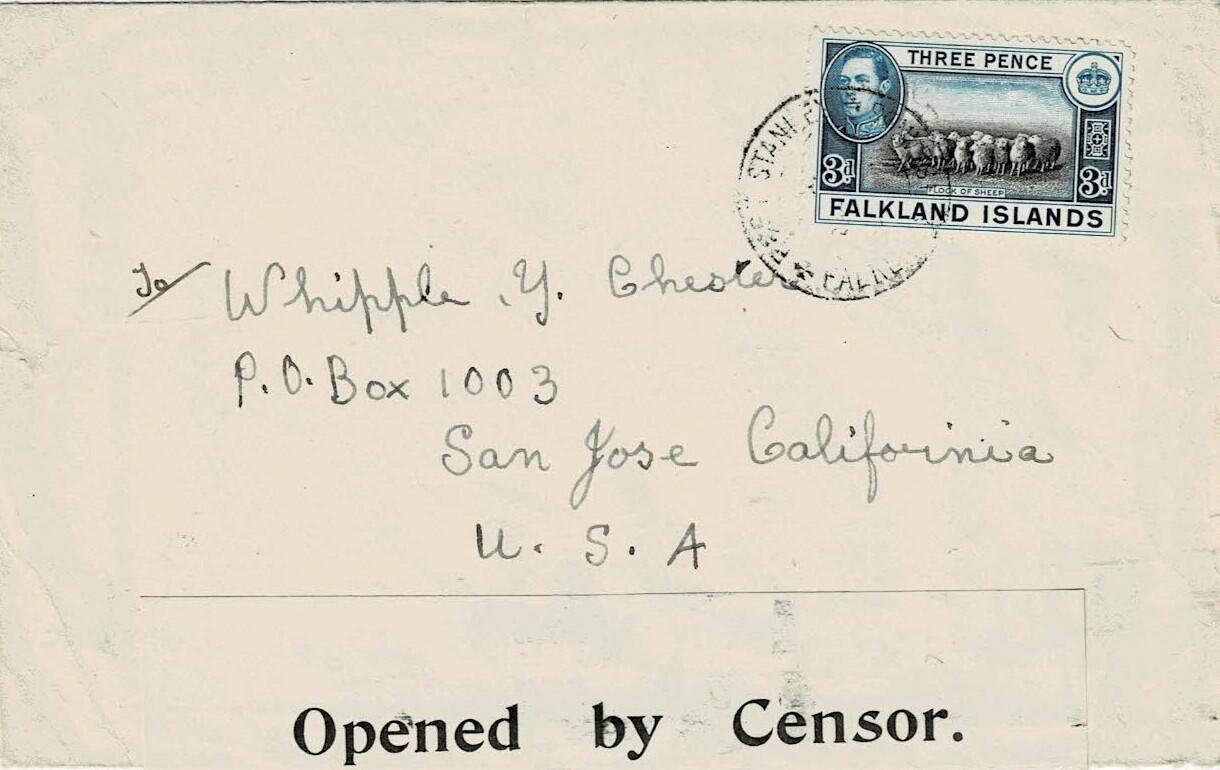 THREE PENCE
3d 3d
FLOCK OF SHEEP
FALKLAND ISLANDS
STANLEY
To Whipple .Y. Chester
P.O. Box 1003
San Jose California
U. S. A
Opened by Censor.